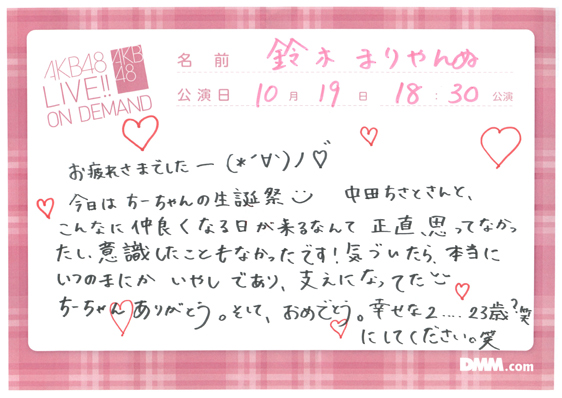 AKB48
LIVE!!
ON DEMAND
AKB
48
名前 鈴木まりやんぬ
公演日 10月19日 18:30公演
お疲れさまでしたー(*´∀`)ノ♡
今日はちーちゃんの生誕祭 中田ちさとさんと、
こんなに仲良くなる日が来るなんて正直、思ってなかっ
たし、意識したこともなかったです!気づいたら、本当に
いつのまにかいやしであり、支えになってた
ちーちゃんありがとう。そして、おめでとう。幸せな2....23歳?笑
にしてください。笑
DMM.com